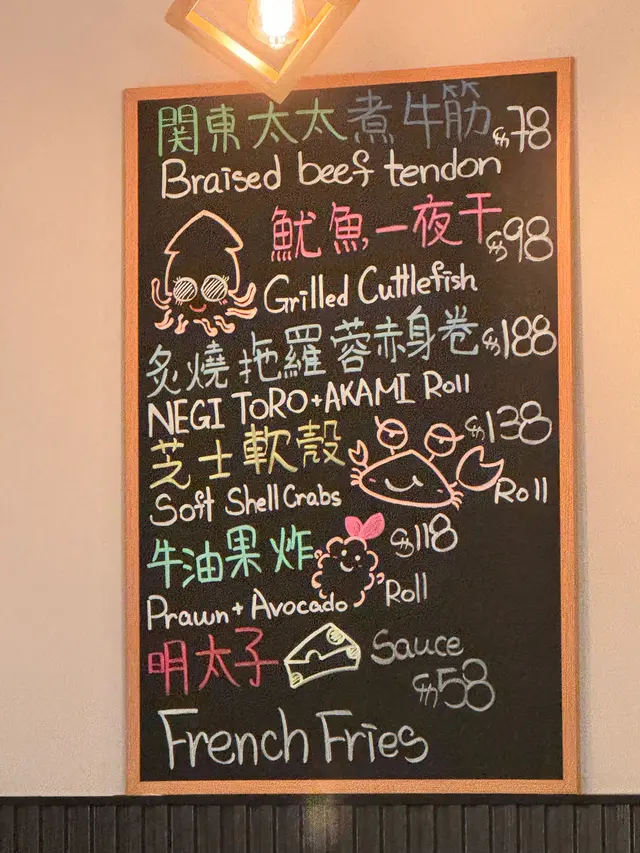 関東太太煮牛筋 $78
Braised beef tendon
魷魚一夜干 $98
Grilled Cuttlefish
炙燒拖羅蓉赤身卷 $188
NEGI TORO+AKAMI Roll
芝士軟殼 $138
Soft Shell Crabs Roll
牛油果炸 $118
Prawn + Avocado Roll
明太子 Sauce
$58
French Fries